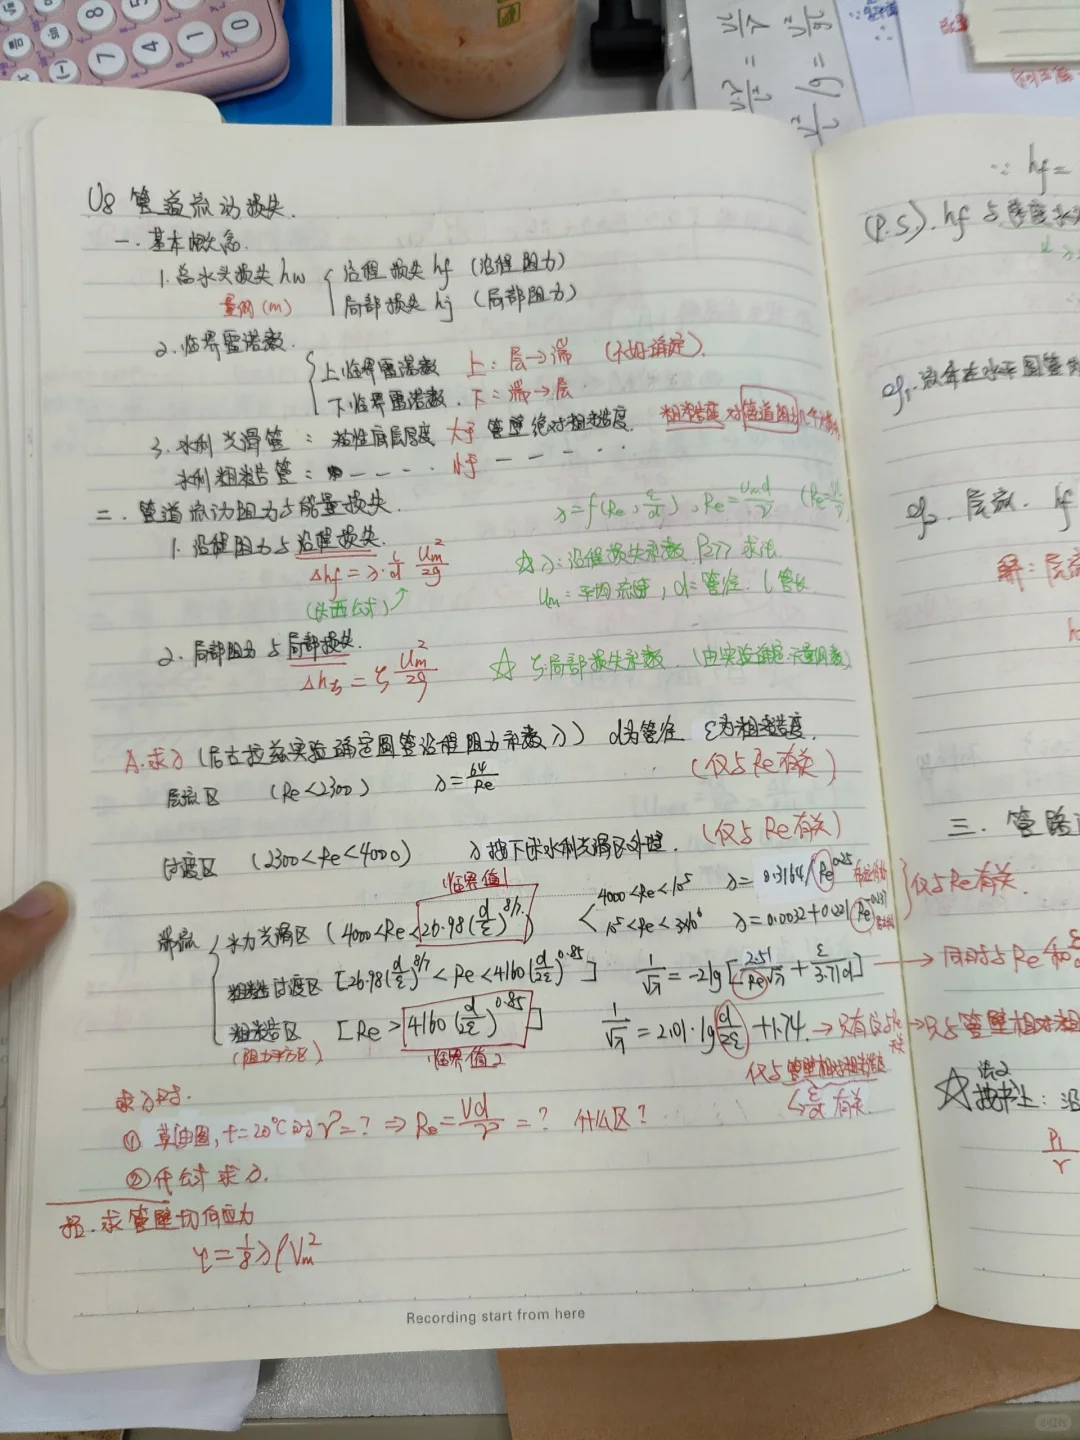 U8 管道流动损失.
一. 基本概念.
1. 总水头损失 hw { 沿程损失 hf (沿程阻力)
量纲 (m) 局部损失 hj (局部阻力)
2. 临界雷诺数.
{ 上临界雷诺数 上: 层→湍 (不好确定).
下临界雷诺数. 下: 湍→层.
3. 水利光滑管: 粘性底层厚度 大于 管壁绝对粗糙度. 粗糙度对管道阻力
水利粗糙管: - - - - 小于 - - - - -
二. 管道流动阻力与能量损失.
λ=f(Re, ε/d), Re=Umd/ν
1. 沿程阻力与沿程损失.
Δhf = λ·l/d Um²/2g
☆ λ: 沿程损失系数 求法.
(达西公式)
Um: 平均流速, d: 管径. l 管长
2. 局部阻力与局部损失.
Δhj = ζ Um²/2g
☆ ζ: 局部损失系数. (由实验确定, 无量纲数)
A. 求λ (尼古拉兹实验确定圆管沿程阻力系数λ) d为管径 ε为粗糙度.
层流区 (Re<2300) λ=64/Re (仅与Re有关)
过渡区 (2300<Re<4000) λ按下述水利光滑区处理. (仅与Re有关)
临界值1
湍流 { 水力光滑区 (4000<Re<26.98(d/ε)^8/7) < 4000<Re<10⁵ λ=0.3164/Re^0.25
10⁵<Re<3×10⁶ λ=0.0032+0.221Re^-0.237 } 仅与Re有关.
粗糙过渡区 [26.98(d/ε)^8/7<Re<4160(d/2ε)^0.85] 1/√λ=-2lg[2.51/Re√λ+ε/3.71d] → 同时与Re和ε/d
粗糙区 [Re>4160(d/2ε)^0.85] 1/√λ=2.01·lg d/2ε+1.74. → →只与管壁相对粗
(阻力平方区) 临界值2
仅与管壁相对粗糙度
↳ε/d有关.
求λ时.
① 莫迪图, t=20°C时 ν=? ⇒ Re=Vd/ν=? 什么区?
② 什么公式求λ.
拓. 求管壁切向应力
τ=1/8λρVm²
Recording start from here
∵ hf=
(P.S.). hf 与
eg1. 流体在水平圆管
eg2. 层流. hf
解: 层流
三. 管路
☆ 按书上: 沿
P1/r
小红书